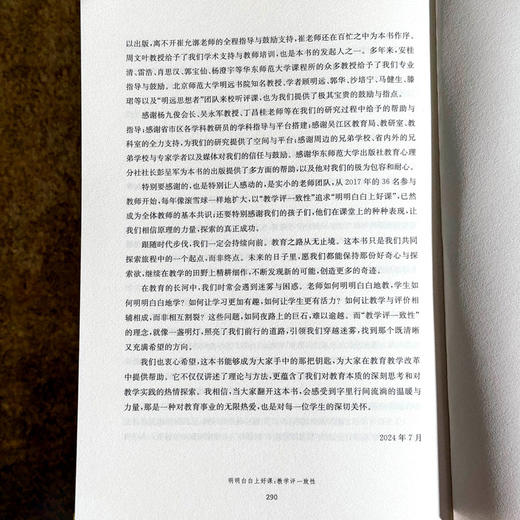 以出版，离不开崔允漷老师的全程指导与鼓励支持，崔老师还在百忙之中为本书作序。
周文叶教授给予了我们学术支持与教师培训，也是本书的发起人之一。多年来，安桂
清、雷浩、肖思汉、郭宝仙、杨澄宇等华东师范大学课程所的众多教授给予了我们专业
指导与鼓励。北京师范大学明远书院知名教授、学者顾明远、郭华、沙培宁、马健生、滕
珺等以及“明远思想者”团队来校听评课，也为我们提供了极其宝贵的鼓励与指点。
感谢杨九俊会长、吴永军教授、丁昌桂老师等在我们的研究过程中给予的帮助与
指导；感谢省市区各学科教研员的学科指导与平台搭建；感谢吴江区教育局、教研室、教
科室的全力支持，为我们的研究提供了空间与平台；感谢周边的兄弟学校、省内外的兄
弟学校与专家学者以及媒体对我们的信任与鼓励。感谢华东师范大学出版社教育心理
分社社长彭呈军为本书的出版提供了多方面的帮助，以及他对我们的极为包容和耐心。
特别要感谢的，也是特别让人感动的，是实小的老师团队，从 2017 年的 36 名参与
教师开始，每年像滚雪球一样地扩大，以“教学评一致性”追求“明明白白上好课”，已然
成为全体教师的基本共识；还要特别感谢我们的孩子们，他们在课堂上的种种表现，让
我们相信原理的力量，探索的真正成功。
跟随时代步伐，我们一定会持续向前。教育之路从无止境。这本书只是我们共同
探索旅程中的一个起点，而非终点。未来的日子里，愿我们都能保持那份好奇心与探
索欲，继续在教学的田野上精耕细作，不断发现新的可能，创造更多的奇迹。
在教育的长河中，我们时常会遇到迷雾与困惑。老师如何明明白白地教，学生如
何明明白白地学？如何让学习更加有趣，如何让学生更有活力？如何让教学与评价相
辅相成，而非相互割裂？这些问题，如同夜路上的巨石，难以逾越。而“教学评一致性”
的理念，就像一盏明灯，照亮了我们前行的道路，引领我们穿越迷雾，找到那个既清晰
又充满希望的方向。
我们也衷心希望，这本书能够成为大家手中的那把钥匙，为大家在教育教学改革
中提供帮助。它不仅仅讲述了理论与方法，更蕴含了我们对教育本质的深刻思考和对
教学实践的热情探索。我相信，当大家翻开这本书，会感受到字里行间流淌的温暖与
力量，那是一种对教育事业的无限热爱，也是对每一位学生的深切关怀。
2024 年 7 月
明明白白上好课：教学评一致性
290